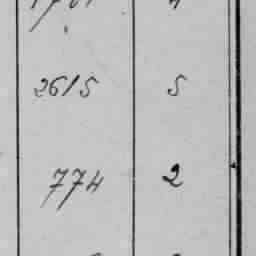 2615 5
774 2